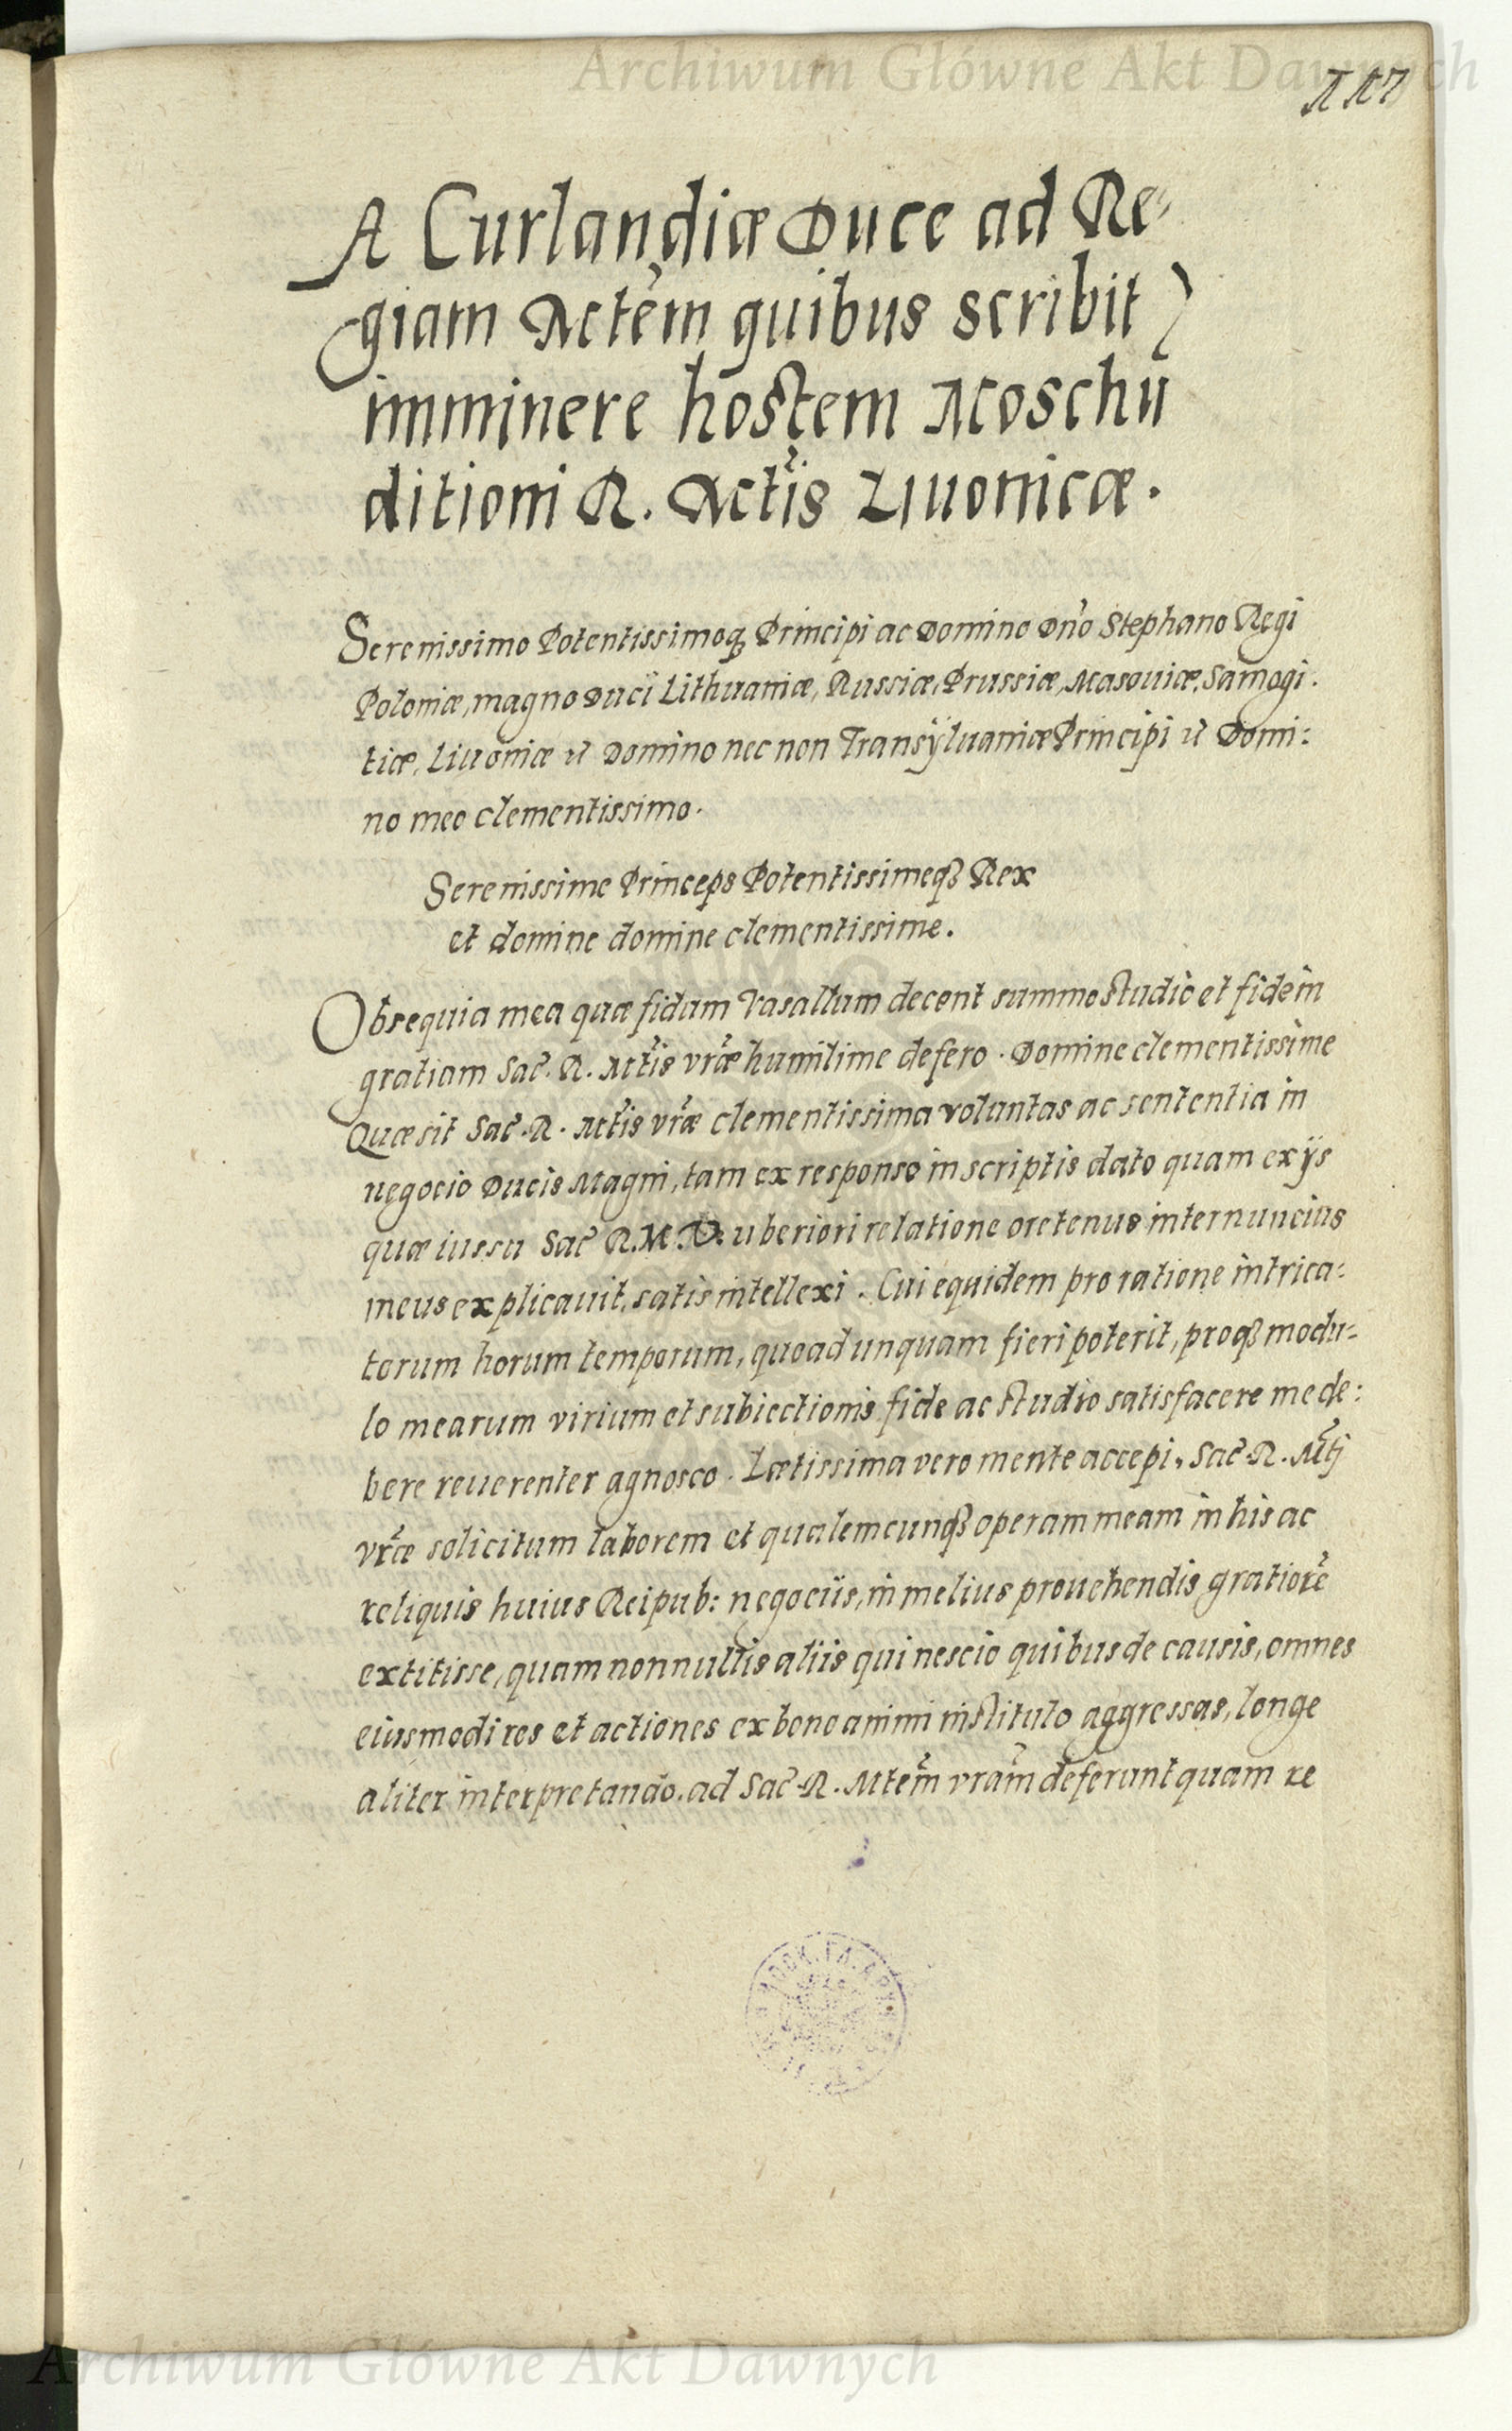 Archiwum Główne Akt Dawnych
117
A Curlandiæ Duce ad Re-
giam Mtem quibus scribit
imminere hostem Moschũ
ditioni R. Mtis Liuonicæ.
Serenissimo Potentissimoq₃ Principi ac Domino Dn̄o Stephano Regi
Poloniæ, magno Duci Lithuaniæ, Russiæ, Prussiæ, Masouiæ, Samogi.
ticæ, Liuoniæ &c Domino nec non Transÿluaniæ Principi &c Domi:
no meo clementissimo.
Serenissime Princeps Potentissimeq₃ Rex
et domine domine clementissime.
Obsequia mea quæ fidum Vasallum decent summo studio et fidem
gratiam Sac. R. Mtis vræ humilime defero. Domine clementissime
Quæ sit Sac. R. Mtis vræ clementissima voluntas ac sententia in
negocio Ducis Magni, tam ex responso in scriptis dato quam ex ÿs
quæ iussu Sac R. M. V. uberiori relatione oretenus internuncius
meus explicauit, satis intellexi. Cui equidem pro ratione intrica:
torum horum temporum, quoad unquam fieri poterit, proq₃ modu-
lo mearum virium et subiectionis fide ac studio satisfacere me de:
bere reuerenter agnosco. Lætissima vero mente accepi, Sac. R. Mtj
vræ solicitum laborem et qualemcunq₃ operam meam in his ac
reliquis huius Reipub: negociis, in melius prouehendis gratiorẽ
extitisse, quam nonnullis aliis qui nescio quibus de causis, omnes
eiusmodi res et actiones ex bono animi instituto aggressas, longe
aliter interpretando, ad Sac. R. Mtem vram deferunt quam re
Archiwum Główne Akt Dawnych